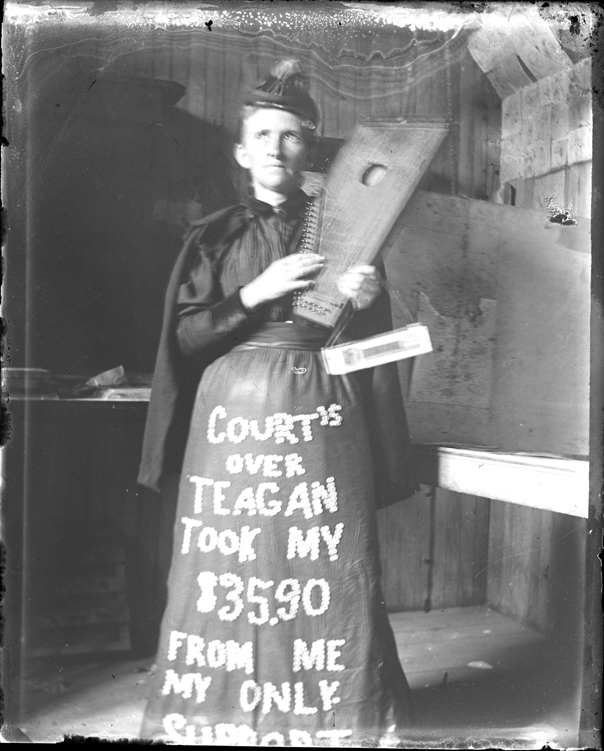 COURT'S
OVER
TEAGAN
TOOK MY
$35.90
FROM ME
MY ONLY
SUPPORT